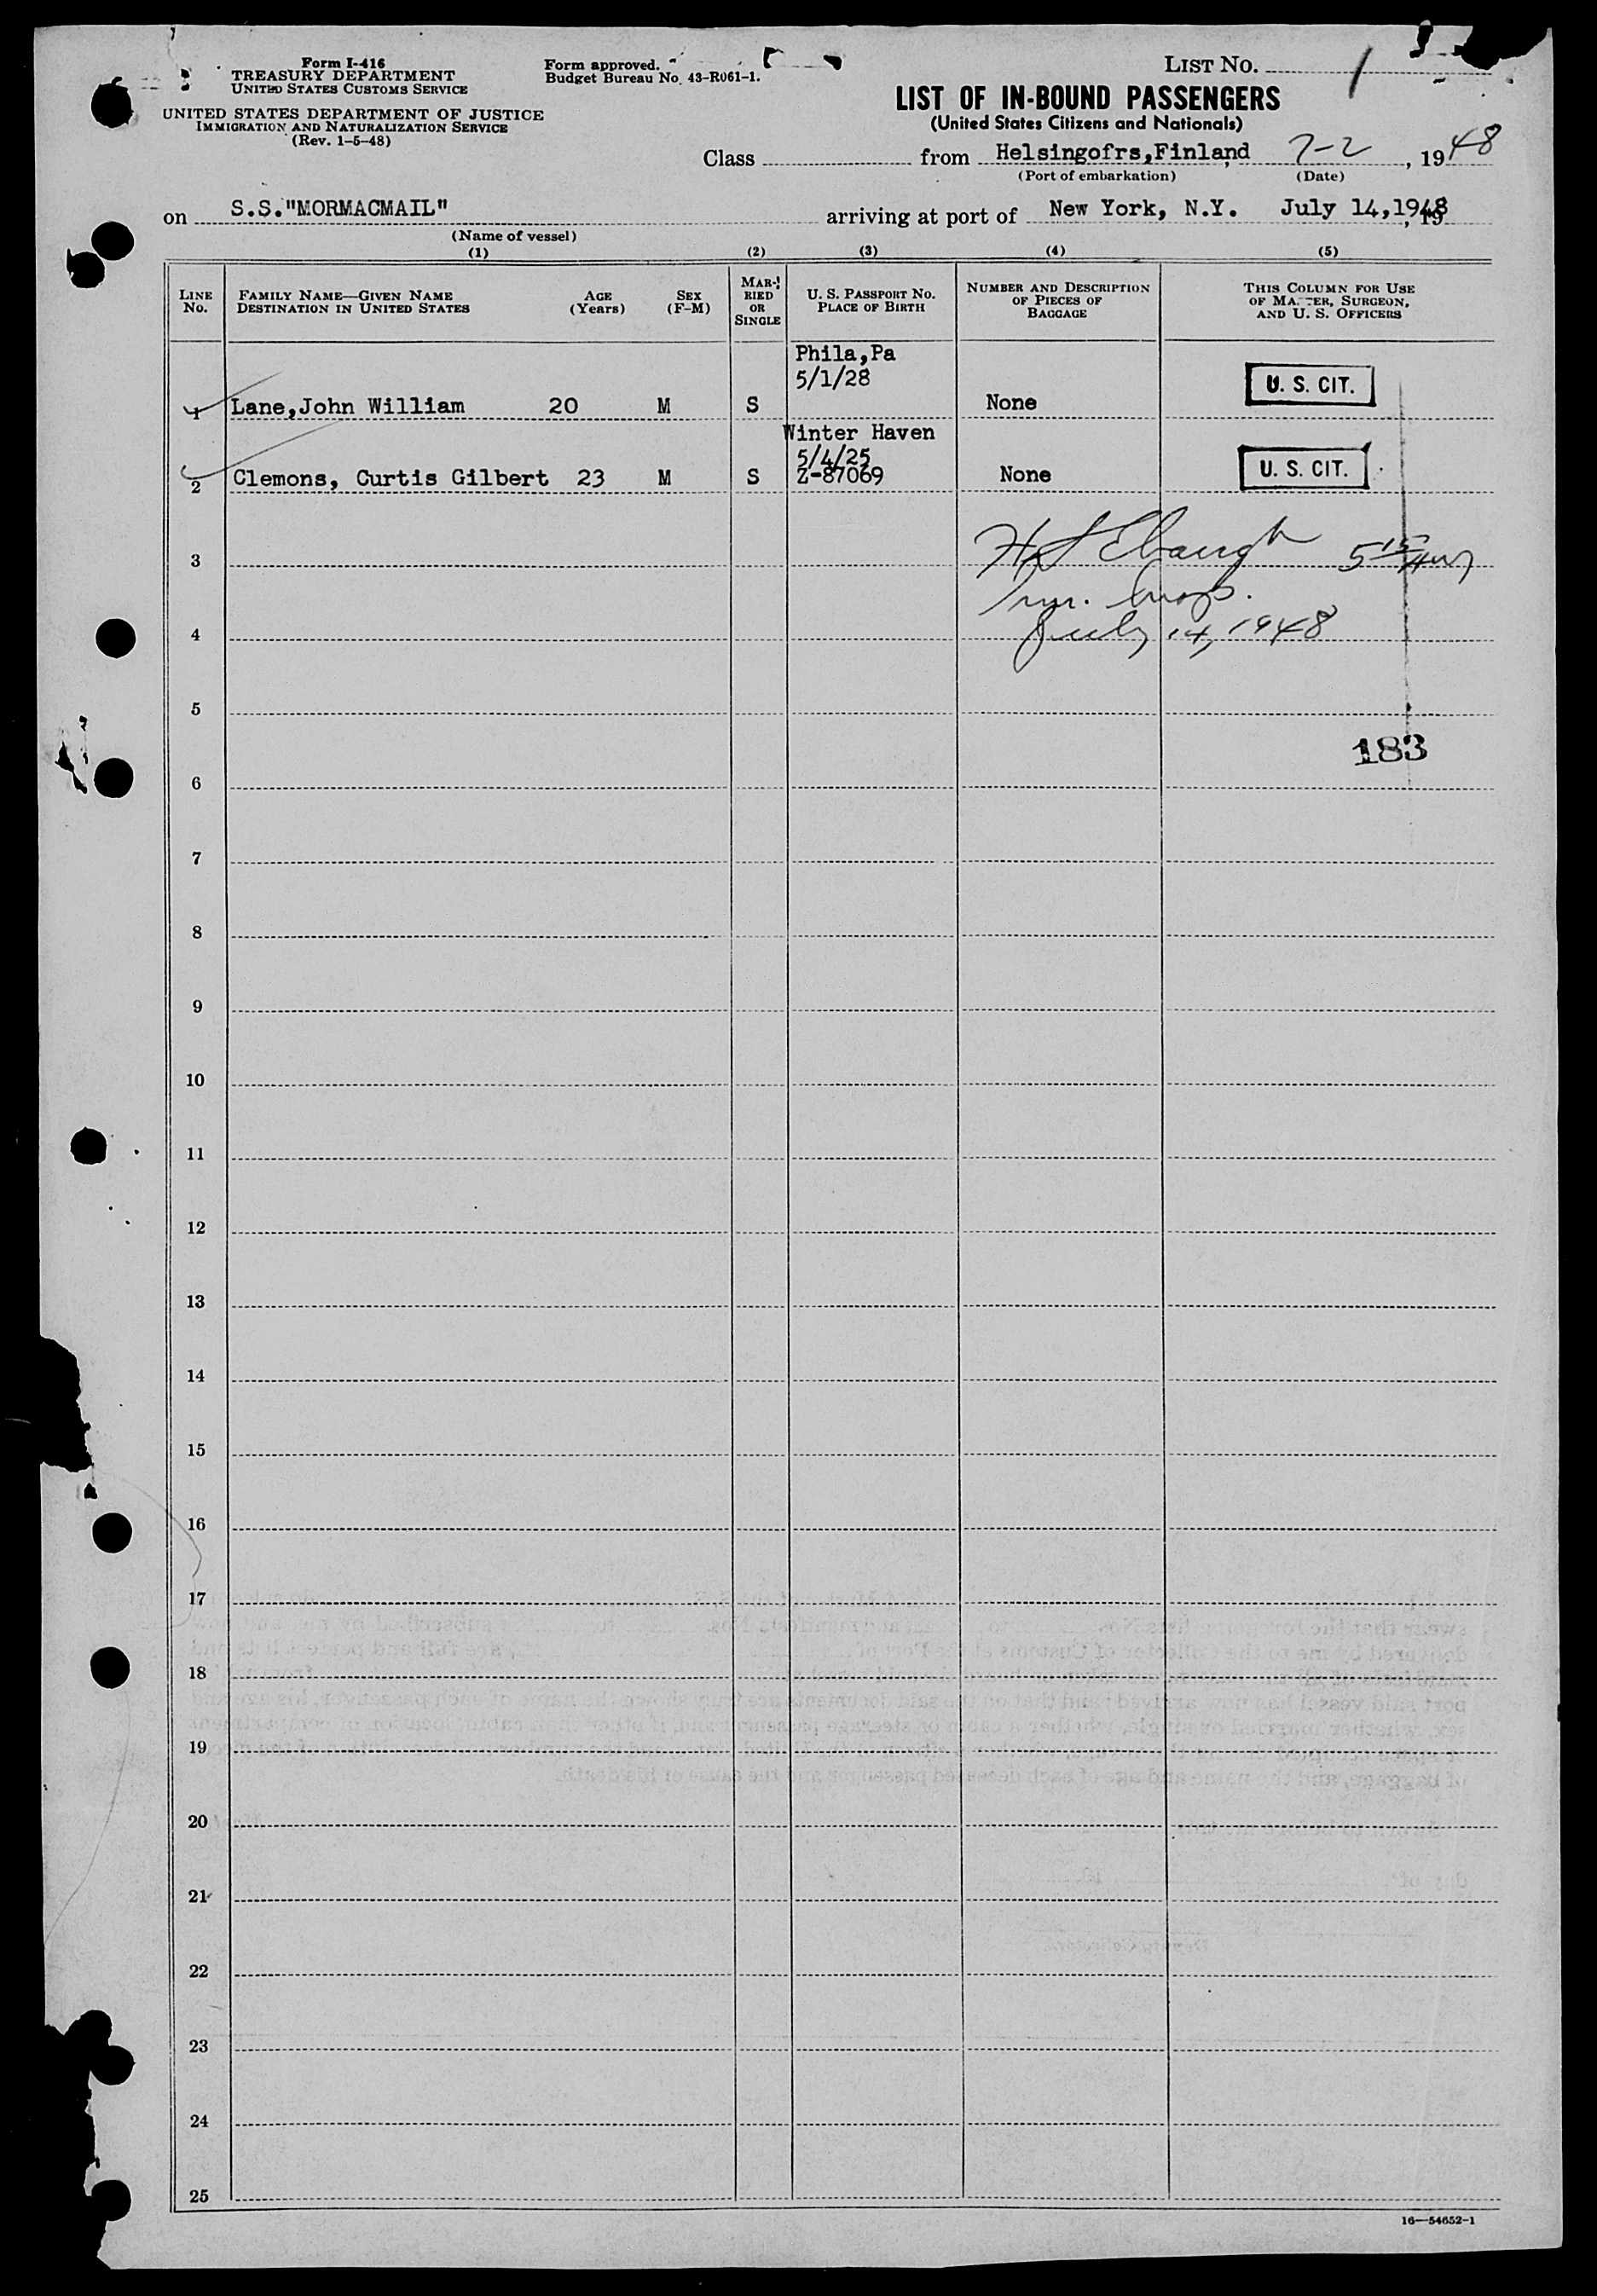 Form I-416
TREASURY DEPARTMENT
UNITED STATES CUSTOMS SERVICE
UNITED STATES DEPARTMENT OF JUSTICE
IMMIGRATION AND NATURALIZATION SERVICE
(Rev. 1-5-48)
Form approved.
Budget Bureau No. 43-R061-1.
LIST No. 1
LIST OF IN-BOUND PASSENGERS
(United States Citizens and Nationals)
Class from Helsingofrs,Finland 7-2, 1948
(Port of embarkation) (Date)
on S.S."MORMACMAIL" arriving at port of New York, N.Y. July 14,1948, 19
(Name of vessel)
(1) (2) (3) (4) (5)
LINE No.
FAMILY NAME—GIVEN NAME
DESTINATION IN UNITED STATES
AGE (Years)
SEX (F-M)
MARRIED OR SINGLE
U. S. PASSPORT NO.
PLACE OF BIRTH
NUMBER AND DESCRIPTION OF PIECES OF BAGGAGE
THIS COLUMN FOR USE OF MASTER, SURGEON, AND U. S. OFFICERS
Phila,Pa
5/1/28
1 Lane,John William 20 M S None U. S. CIT.
Winter Haven
5/4/25
2 Clemons, Curtis Gilbert 23 M S Z-87069 None U. S. CIT.
3 Ebaugh 5 15
4 July 14, 1948
5
183
6
7
8
9
10
11
12
13
14
15
16
17
18
19
20
21
22
23
24
25
16—54652-1